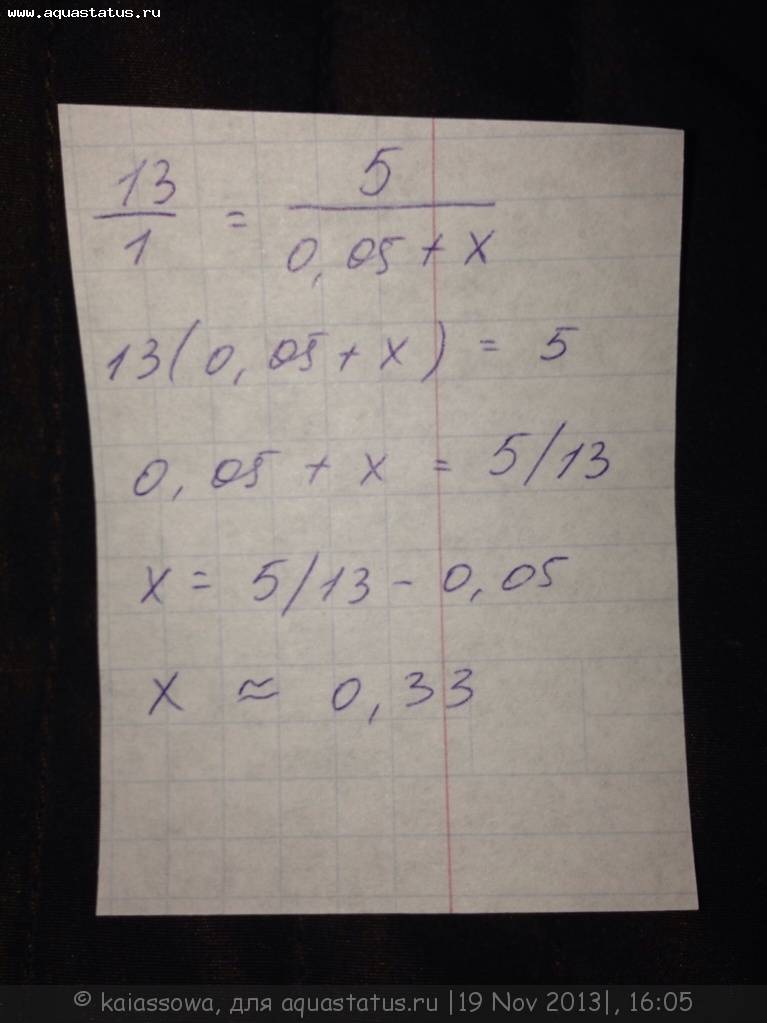 www.aquastatus.ru
13/1 = 5/(0,05 + x)
13(0,05 + x) = 5
0,05 + x = 5/13
x = 5/13 - 0,05
x ≈ 0,33
© kaiassowa, для aquastatus.ru |19 Nov 2013|, 16:05